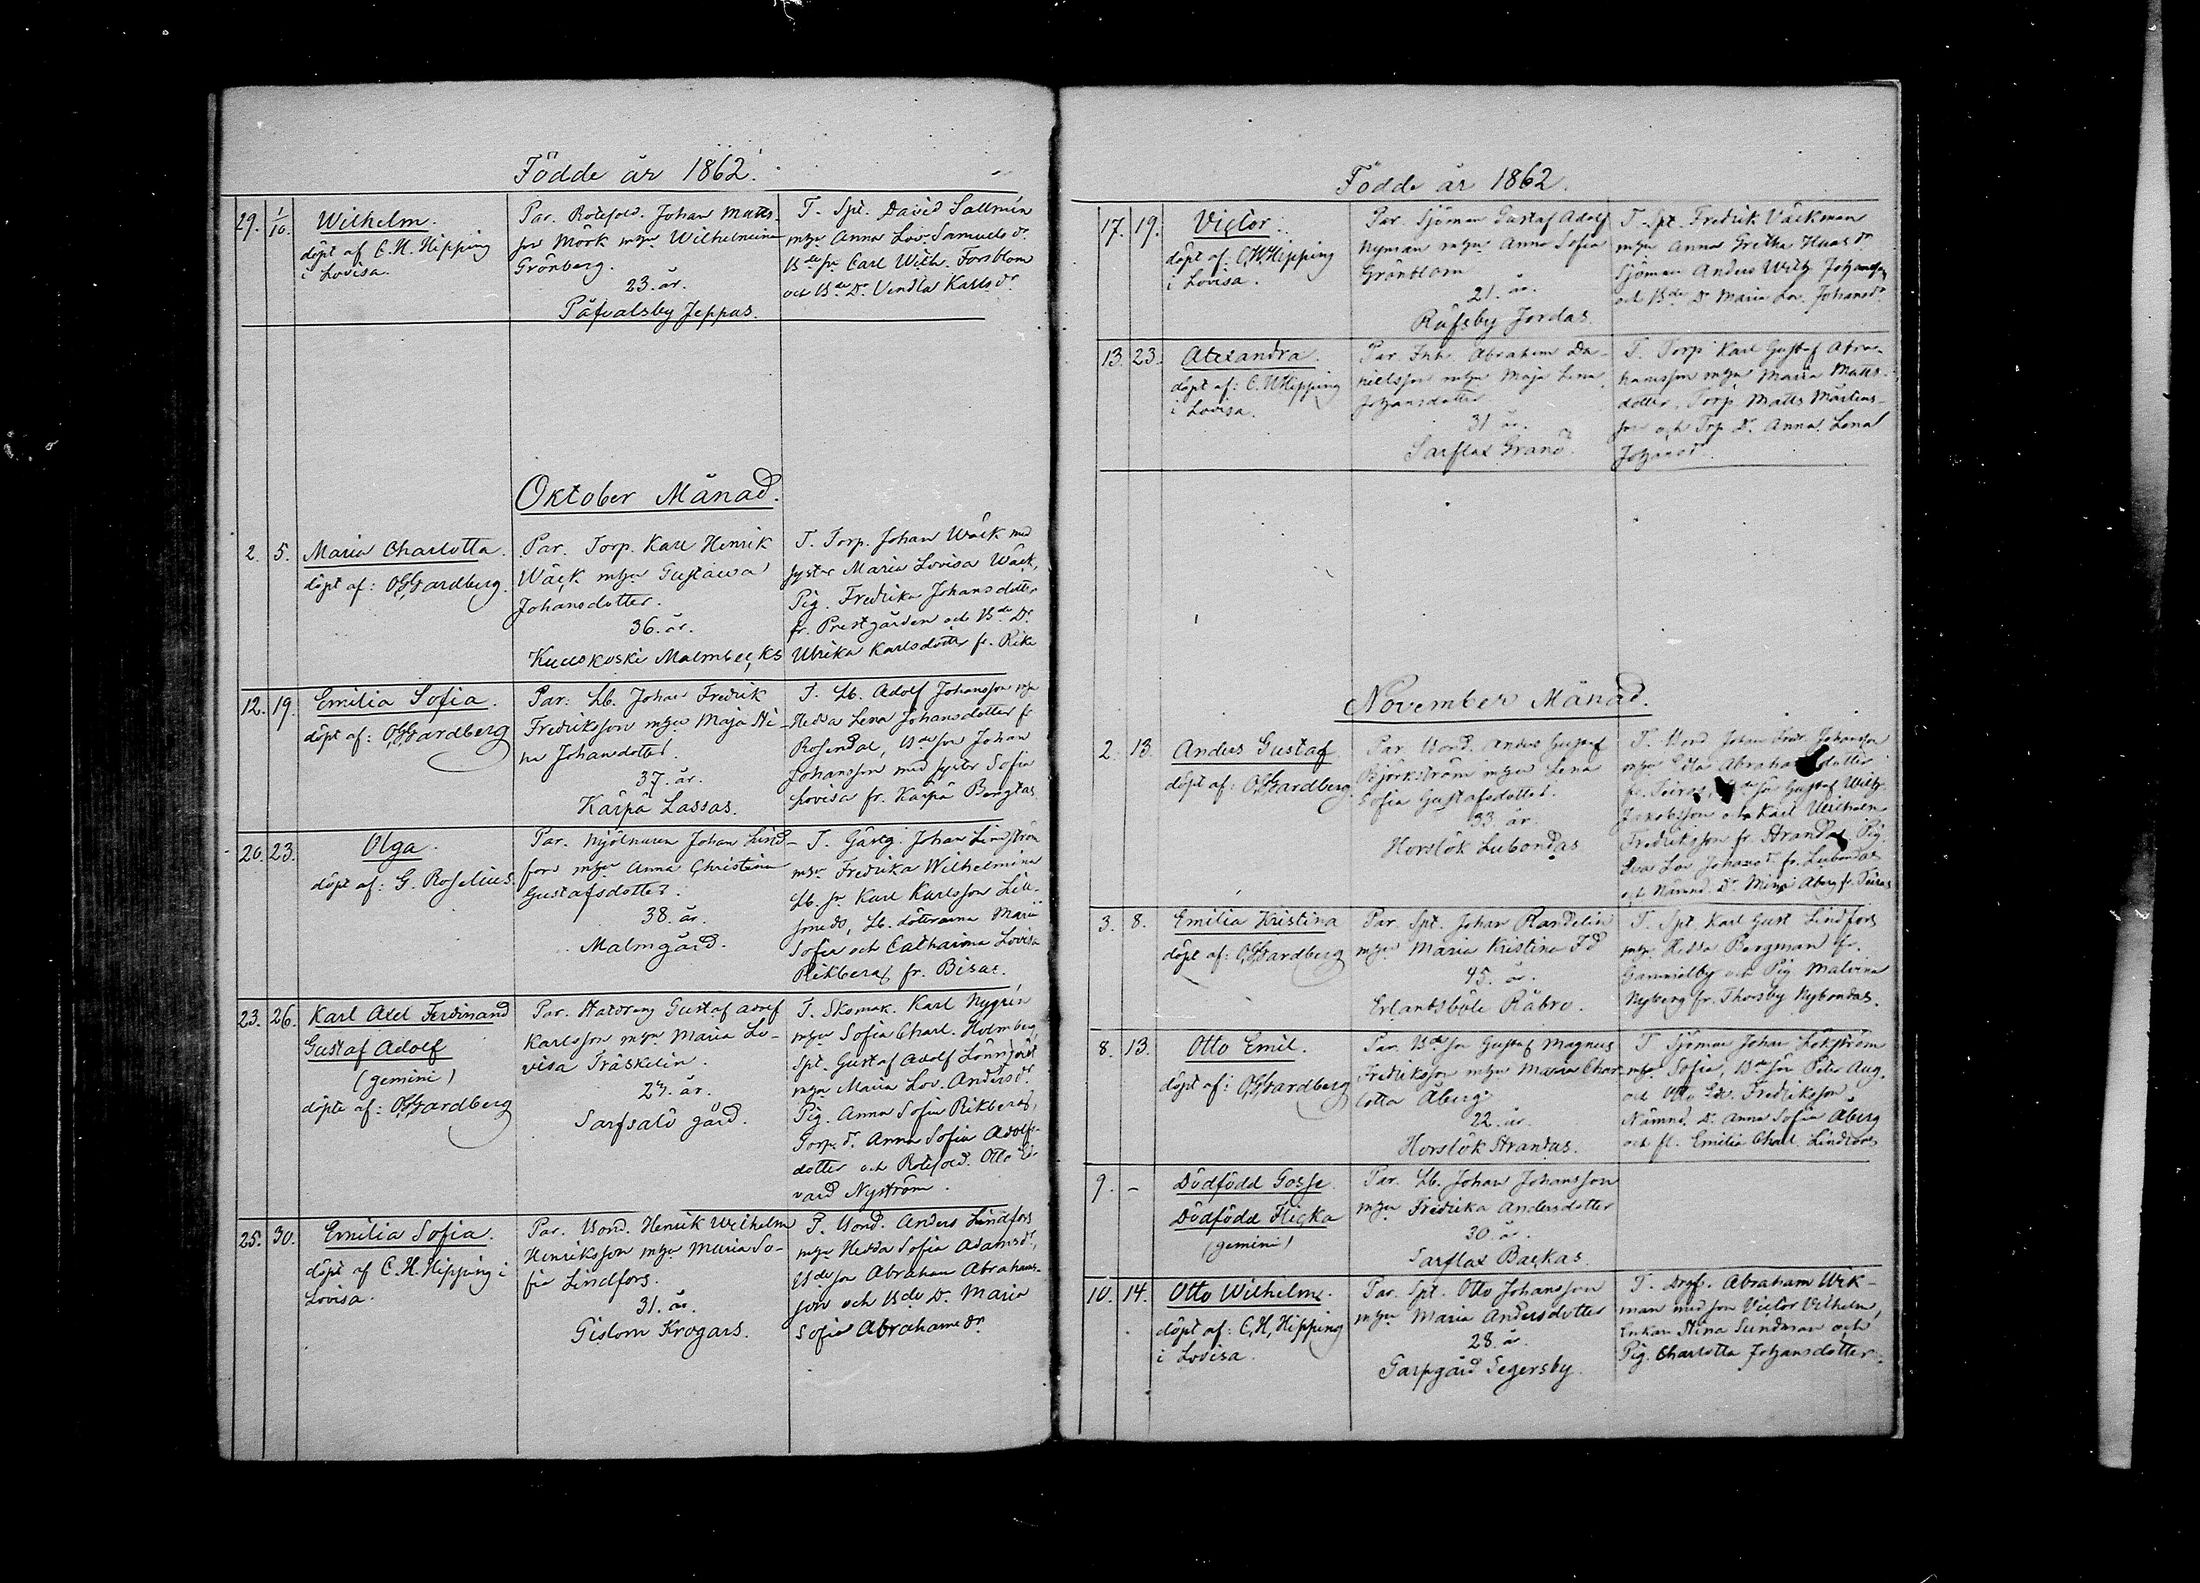 Födde år 1862.
29. 1/10. Wilhelm.
döpt af C. H. Hipping
i Lovisa.
Par. Rotefold. Johan Matts-
son Mörk m hu Wilhelmina
Grönberg.
23. år.
Påfvalsby Jeppas.
T. Spt. David Sallmén
m hu Anna Lov. Samuelsdr
Bdesn Carl Wilh. Forsblom
och Bde Dr Vendla Karlsdr
Oktober Månad.
2. 5. Maria Charlotta.
döpt af: OGGardberg.
Par. Torp. Karl Henrik
Wäck m hu Gustawa
Johansdotter.
36. år.
Kuuskoski Malmbäcks
T. Torp. Johan Wäck med
syster Maria Lovisa Wäck,
Pig. Fredrika Johansdotter
fr. Prestgården och Bde Dr
Ulrika Karlsdotter fr. Rike
12. 19. Emilia Sofia.
döpt af: OGGardberg
Par. Lb. Johan Fredrik
Fredriksson m hu Maja Sti-
na Johansdotter.
37. år.
Kärpä Lassas.
T. Lb. Adolf Johansson m hu
Hedda Lena Johansdotter fr
Rosendal, Bdeson Johan
Johansson med syster Sofia
Lovisa fr. Kärpä Bengtas
20. 23. Olga.
döpt af: G. Roselius.
Par. Mjölnaren Johan Lind-
fors m hu Anna Christina
Gustafsdotter.
38. år.
Malmgård.
T. Gästg. Johan Lindström
m hu Fredrika Wilhelmina
Lb. sn Karl Karlsson Lill-
Lb. döttrarna Maria
Sofia och Catharina Lovisa
Rikberg fr. Bisas.
23. 26. Karl Axel Ferdinand
Gustaf Adolf
(gemini)
döpte af: OGGardberg
Par. Statdräng Gustaf Adolf
Karlsson m hu Maria Lo-
visa Träskelin.
23. år.
Sarfsalö gård.
T. Skomak. Karl Nygrén
m hu Sofia Charl. Holmberg,
Spt. Gustaf Adolf Lönnfors
m hu Maria Lov. Andersdr
Pig. Anna Sofia Rikberg,
Torp. dr Anna Sofia Adolfs-
dotter och Rotefold. Otto Ed-
vard Nyström.
25. 30. Emilia Sofia.
döpt af C. H. Hipping i
Lovisa.
Par. Bond. Henrik Wilhelm
Henriksson m hu Maria So-
fia Lindfors.
31. år.
Gislom Krogars.
T. Bond. Anders Lindfors
m hu Hedda Sofia Adamsdr,
Bdesn Abraham Abrahams-
son och Bde Dr Maria
Sofia Abrahamsdr
Födde år 1862.
17. 19. Victor.
döpt af: C. H. Hipping
i Lovisa.
Par. Sjöman Gustaf Adolf
Nyman m hu Anna Sofia
Grönblom
21. år.
Räfsby Jordas.
T. Spt. Fredrik Väckman
m hu Anna Gretha Hansdr
Sjöman Anders Wilh. Johansson
och Bde Dr Maria Lov. Johansdr
13. 23. Alexandra.
döpt af: C. H. Hipping
i Lovisa.
Par. Inh. Abraham Da-
nielsson m hu Maja Lena
Johansdotter
31 år.
Sarflax Grand.
T. Torp. Karl Gustaf Abra-
hamsson m hu Maria Matts-
dotter, Torp. Matts Mårtens-
son och Trp Dr Anna Lena
Johansdr.
November Månad.
2. 13. Anders Gustaf
döpt af: OGGardberg.
Par. Bond. Anders Gustaf
Björkström m hu Lena
Sofia Gustafsdotter.
33 år.
Horslök Lubondas
T. Bond Johan Fredr. Johansson
m hu Edla Abrahamsdotter
fr. Teiras, Gustaf Wilh.
Jakobsson och Karl Wilhelm
Fredriksson fr. Strandas Pig.
Eva Lov. Johansdr fr. Lubondas
och Nämnd. Dr Mina Åberg fr. Teiras
3. 8. Emilia Kristina
döpt af: OGGardberg
Par. Spt. Johan Randelin
m hu Maria Kristina Id
45. år.
Erlandsböle Råbro.
T. Spt. Karl Gust Lindfors
m hu Hedda Bergman fr.
Gammelby och Pig Malvina
Nyberg fr. Thorsby Nybondas.
8. 13. Otto Emil.
döpt af: OGGardberg
Par. Bdeson Gustaf Magnus
Fredriksson m hu Maria Char-
lotta Åberg
22. år.
Horslök Strandas.
T Sjöman Johan Lökström
m hu Sofia, Bdesön Peter Aug.
och Otto Edv. Fredriksson
Nämnd. Dr Anna Sofia Åberg
och fl. Emilia Charl. Lindfors
9. – Dödfödd Gosse
Dödfödd Flicka
(gemini)
Par. Lb. Johan Johansson
m hu Fredrika Andersdotter
30. år.
Sarflax Backas.
10. 14. Otto Wilhelm.
döpt af: C. H. Hipping
i Lovisa.
Par. Spt. Otto Johansson
m hu Maria Andersdotter
28. år
Garpgård Tegersby.
T. Drgf. Abraham Wik-
man med son Victor Vilhelm,
Enkan Stina Sundman och
Pig. Charlotta Johansdotter.